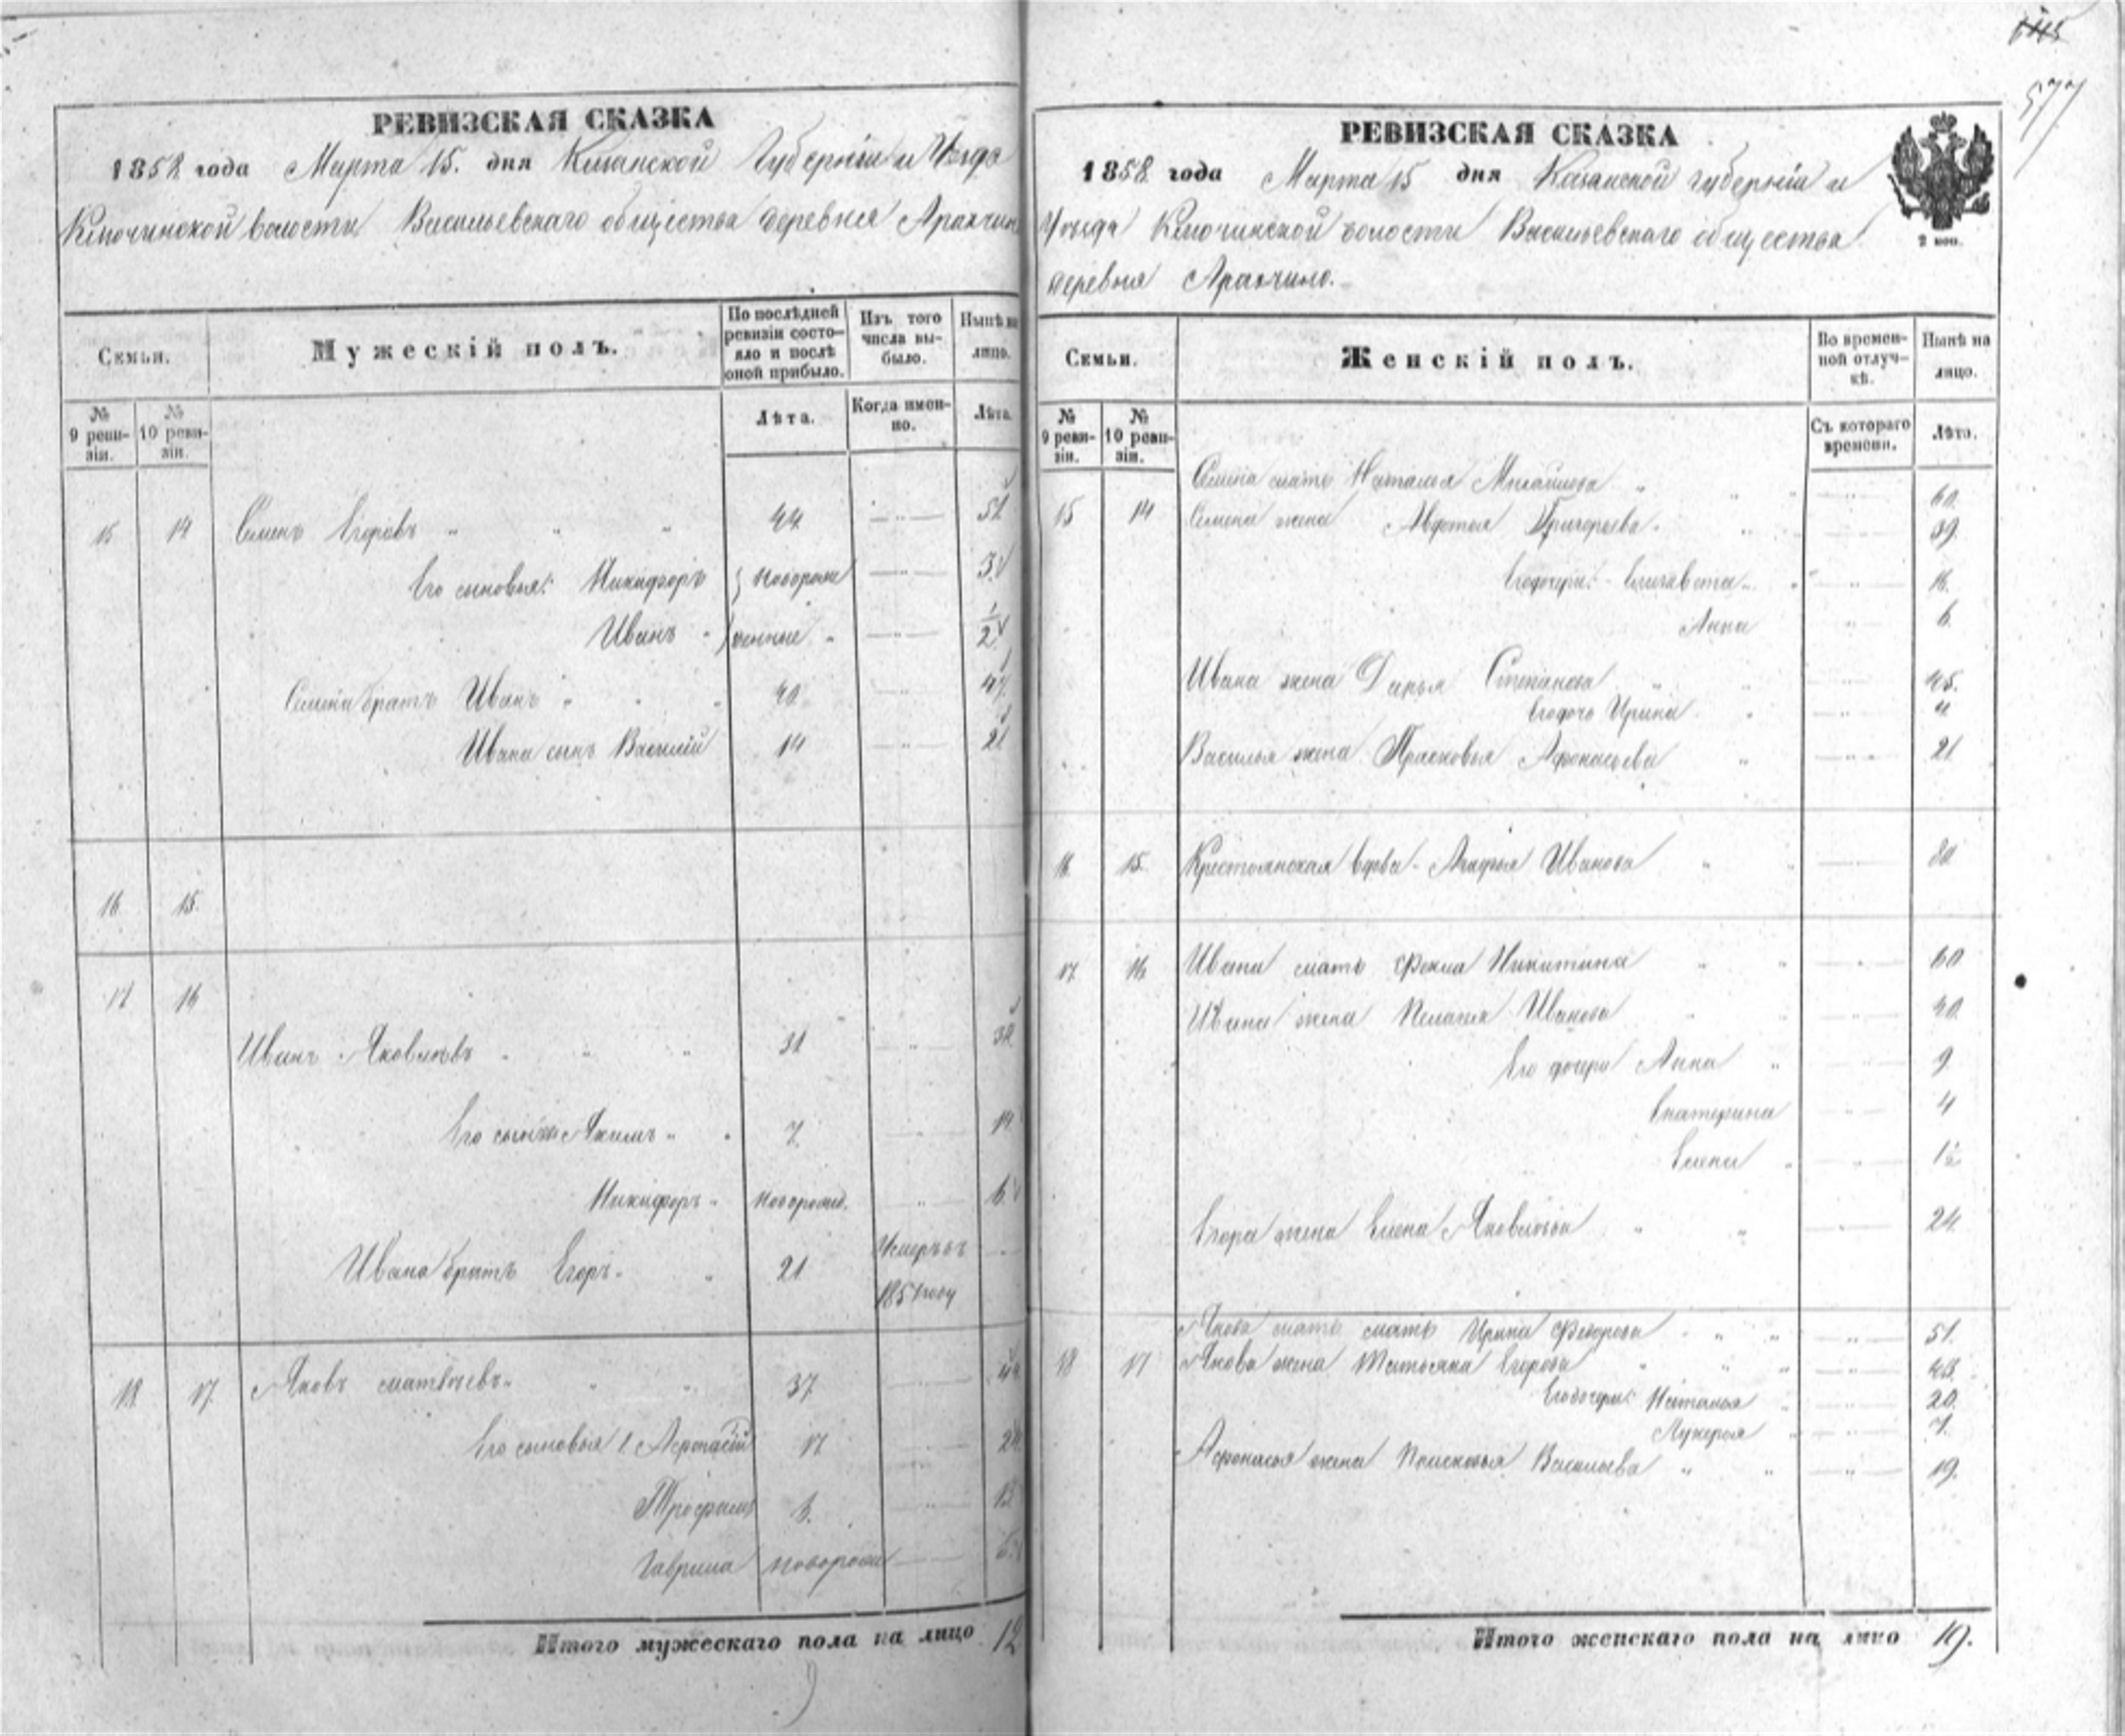 645
577
РЕВИЗСКАЯ СКАЗКА
1858 года Марта 15. дня Казанской Губерніи и Уезда
Ключинской волости Васильевскаго общества деревня Аракчино
Семьи.
Мужескій полъ.
По послѣдней ревизіи состо-
яло и послѣ
оной прибыло.
Изъ того
числа вы-
было.
Нынѣ на
лицо.
№
9 реви-
зіи.
№
10 реви-
зіи.
Лѣта.
Когда имен-
но.
Лѣта.
15 14 Семенъ Егоровъ 44 51
Его сыновья: Никифоръ новорож 3
Иванъ денные 1/2
Семена братъ Иванъ 40 47
Ивана сынъ Василій 14 21
16 15.
17 16
Иванъ Яковлевъ 31 38
Его сыновья Якимъ 7. 14
Никифоръ новорожд. 6
Ивана братъ Егоръ 21 Умеръ въ
1851 году
18 17. Яковъ Матвѣевъ 37 44
Его сыновья 1 Афонасій 17 24
Трофимъ 6. 13
Гаврила новорож 6
Итого мужескаго пола на лицо 12
РЕВИЗСКАЯ СКАЗКА
1858 года Марта 15 дня Казанской губерніи и
Уезда Ключинской волости Васильевскаго общества
деревня Аракчино.
2 коп.
Семьи.
Женскій полъ.
Во времен-
ной отлуч-
кѣ.
Нынѣ на
лицо.
№
9 реви-
зіи.
№
10 реви-
зіи.
Съ котораго
времени.
Лѣта.
Семена мать Наталья Михайлова 60.
15 14 Семена жена Авдотья Григорьева 39.
Его дочери: Елизавета 16.
Анна 6.
Ивана жена Дарья Степанова 45.
Его дочь Ирина 4
Василья жена Прасковья Афонасьева 21
16. 15. Крестьянская вдова Агафья Иванова 80
17. 16 Ивана мать Фекла Никитина 60
Ивана жена Пелагея Иванова 40.
Его дочери Анна 9.
Екатерина 4
Елена 1/2
Егора жена Елена Яковлева 24
Якова мать мать Ирина Федорова 51.
18 17 Якова жена Татьяна Егорова 43.
Его дочери: Наталья 20.
Лукерья 7.
Афонасья жена Прасковья Васильева 19.
Итого женскаго пола на лицо 19.